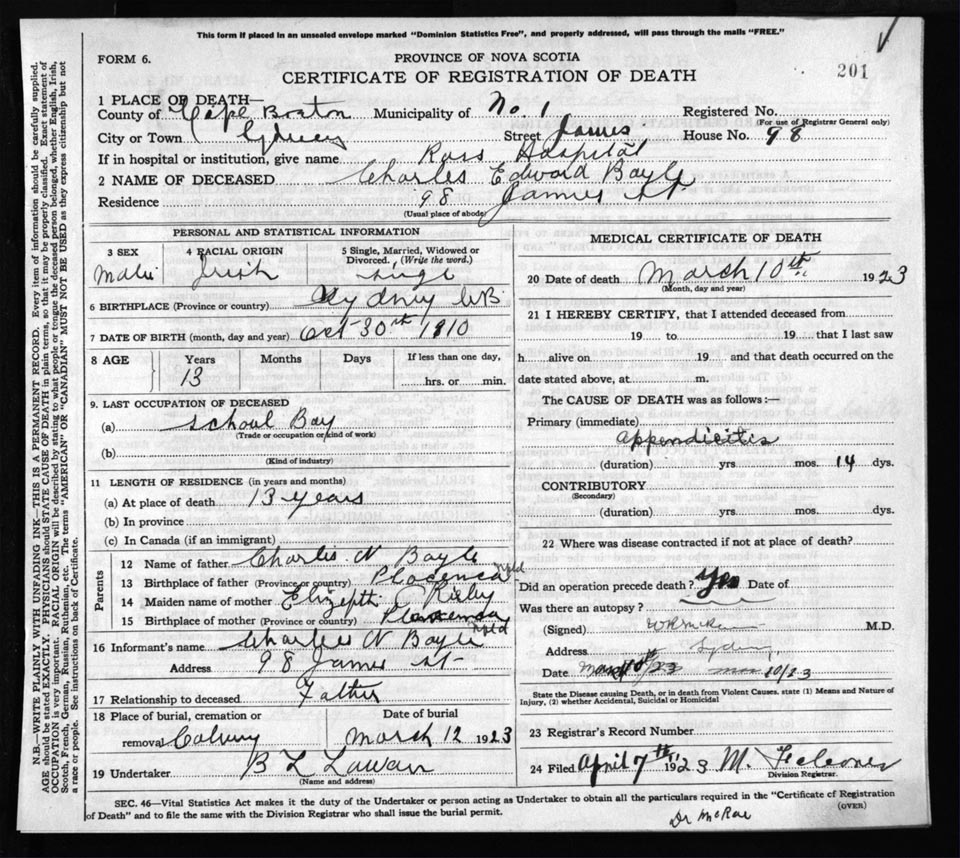 This form if placed in an unsealed envelope marked "Dominion Statistics Free", and properly addressed, will pass through the mails "FREE."
FORM 6.
PROVINCE OF NOVA SCOTIA
CERTIFICATE OF REGISTRATION OF DEATH
201
1 PLACE OF DEATH—
County of Cape Breton Municipality of No. 1 Registered No.
(For use of Registrar General only)
City or Town Sydney Street James House No. 98
If in hospital or institution, give name Ross Hospital
2 NAME OF DECEASED Charles Edward Boyle
Residence 98 James St
(Usual place of abode)
PERSONAL AND STATISTICAL INFORMATION
3 SEX 4 RACIAL ORIGIN 5 Single, Married, Widowed or Divorced. (Write the word.)
Male Irish Single
6 BIRTHPLACE (Province or country) Sydney CB
7 DATE OF BIRTH (month, day and year) Oct 30th 1910
8 AGE Years Months Days If less than one day,
13 hrs. or min.
9. LAST OCCUPATION OF DECEASED
(a) School Boy
(Trade or occupation or kind of work)
(b)
(Kind of industry)
11 LENGTH OF RESIDENCE (in years and months)
(a) At place of death 13 years
(b) In province
(c) In Canada (if an immigrant)
Parents
12 Name of father Charles N Boyle
13 Birthplace of father (Province or country) Placenca Nfld
14 Maiden name of mother
15 Birthplace of mother (Province or country) Nfld
16 Informant's name Charles N Boyle
Address 98 James St
17 Relationship to deceased Father
18 Place of burial, cremation or removal Calvary
Date of burial March 12 1923
19 Undertaker B L
(Name and address)
MEDICAL CERTIFICATE OF DEATH
20 Date of death March 10th 1923
(Month, day and year)
21 I HEREBY CERTIFY, that I attended deceased from
19 to 19 that I last saw
h alive on 19 and that death occurred on the
date stated above, at m.
The CAUSE OF DEATH was as follows:—
Primary (immediate)
appendicitis
(duration) yrs mos. 14 dys.
CONTRIBUTORY
(Secondary)
(duration) yrs. mos. dys.
22 Where was disease contracted if not at place of death?
Did an operation precede death? Yes Date of
Was there an autopsy?
(Signed) M.D.
Address Sydney
Date 10/23
State the Disease causing Death, or in death from Violent Causes, state (1) Means and Nature of
Injury, (2) whether Accidental, Suicidal or Homicidal
23 Registrar's Record Number
24 Filed April 7th 1923 M.
Division Registrar.
SEC. 46—Vital Statistics Act makes it the duty of the Undertaker or person acting as Undertaker to obtain all the particulars required in the "Certificate of Registration
of Death" and to file the same with the Division Registrar who shall issue the burial permit.
(OVER)
Dr McRae
N.B.—WRITE PLAINLY WITH UNFADING INK—THIS IS A PERMANENT RECORD. Every item of information should be carefully supplied.
AGE should be stated EXACTLY. PHYSICIANS should STATE CAUSE OF DEATH in plain terms, so that it may be properly classified. Exact statement of
OCCUPATION is very important. RACIAL ORIGIN will be described by stating to what people or tongue the deceased person belonged, whether English, Irish,
Scotch, French, German, Russian, Ruthenian, etc. The terms "AMERICAN" or "CANADIAN" MUST NOT BE USED as they express citizenship but not
a race or people. See instructions on back of Certificate.